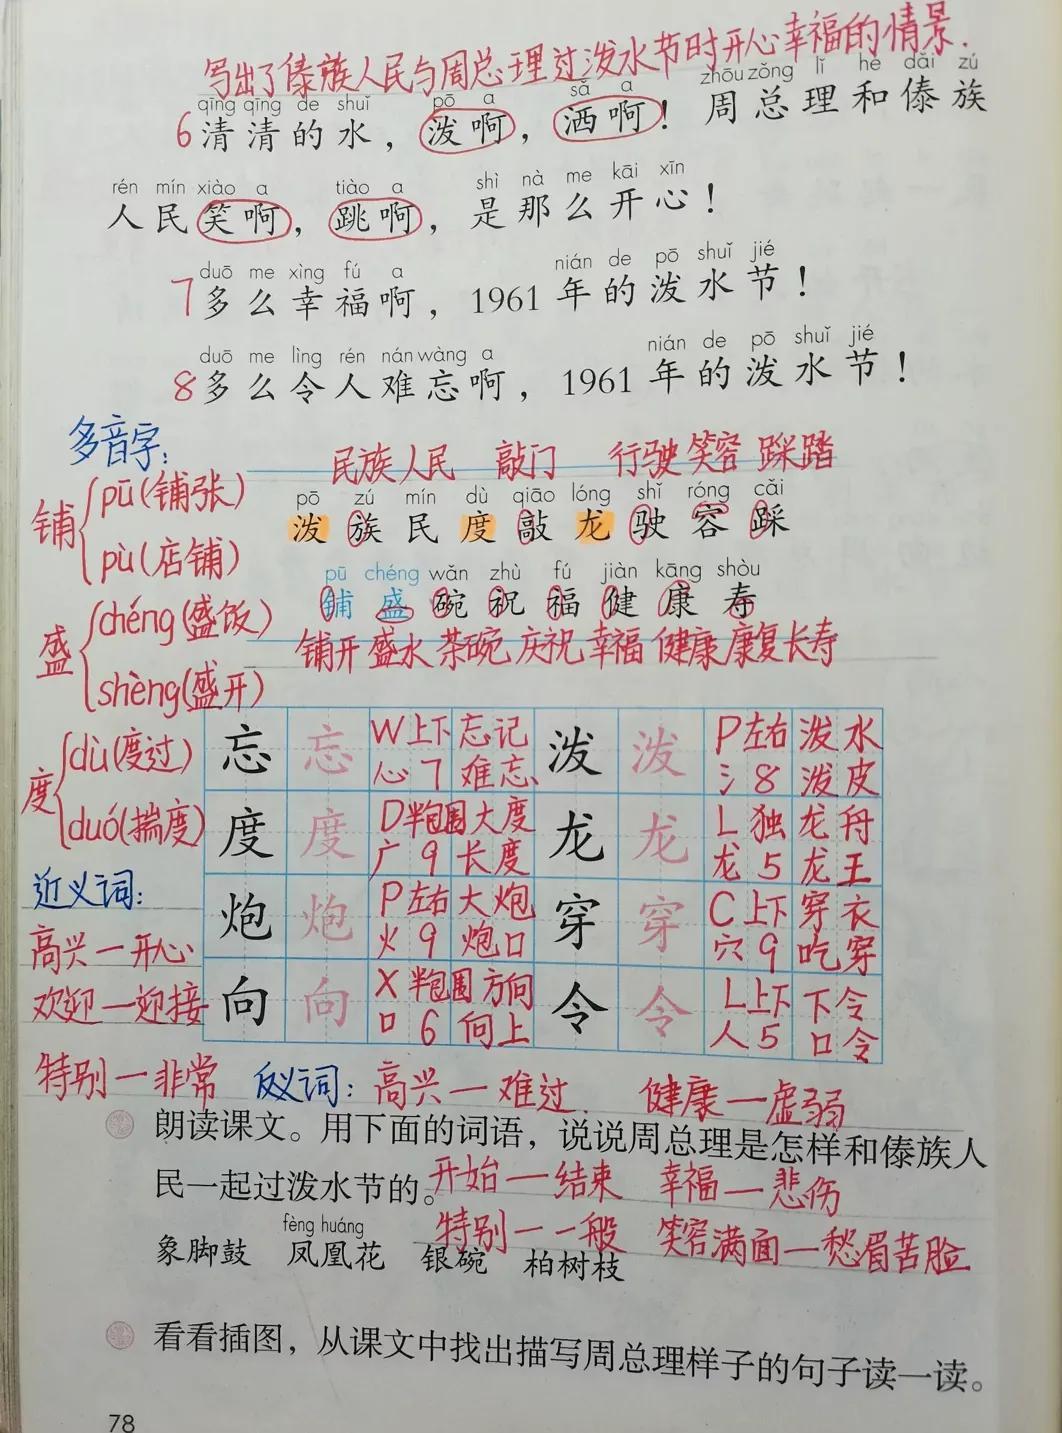 写出了傣族人民与周总理过泼水节时开心幸福的情景.
qīng qīng de shuǐ pō a sǎ a zhōu zǒng lǐ hé dǎi zú
6清清的水，泼啊，洒啊！周总理和傣族
rén mín xiào a tiào a shì nà me kāi xīn
人民笑啊，跳啊，是那么开心！
duō me xìng fú a nián de pō shuǐ jié
7多么幸福啊，1961年的泼水节！
duō me lìng rén nán wàng a nián de pō shuǐ jié
8多么令人难忘啊，1961年的泼水节！
多音字：
铺 pū(铺张)
pù(店铺)
盛 chéng(盛饭)
shèng(盛开)
度 dù(度过)
duó(揣度)
民族 人民 敲门 行驶 笑容 踩踏
pō zú mín dù qiāo lóng shǐ róng cǎi
泼 族 民 度 敲 龙 驶 容 踩
pū chéng wǎn zhù fú jiàn kāng shòu
铺 盛 碗 祝 福 健 康 寿
铺开 盛水 茶碗 庆祝 幸福 健康 康复 长寿
忘 忘 W 上下 忘记 泼 泼 P 左右 泼水
心 7 难忘 氵 8 泼皮
度 度 D 半包围 大度 龙 龙 L 独 龙舟
广 9 长度 龙 5 龙王
炮 炮 P 左右 大炮 穿 穿 C 上下 穿衣
火 9 炮口 穴 9 吃穿
向 向 X 半包围 方向 令 令 L 上下 下令
口 6 向上 人 5 口令
近义词：
高兴—开心
欢迎—迎接
特别—非常
反义词：高兴—难过 健康—虚弱
朗读课文。用下面的词语，说说周总理是怎样和傣族人
民一起过泼水节的。
开始—结束 幸福—悲伤
特别—一般 笑容满面—愁眉苦脸
fèng huáng
象脚鼓 凤凰花 银碗 柏树枝
看看插图，从课文中找出描写周总理样子的句子读一读。
78